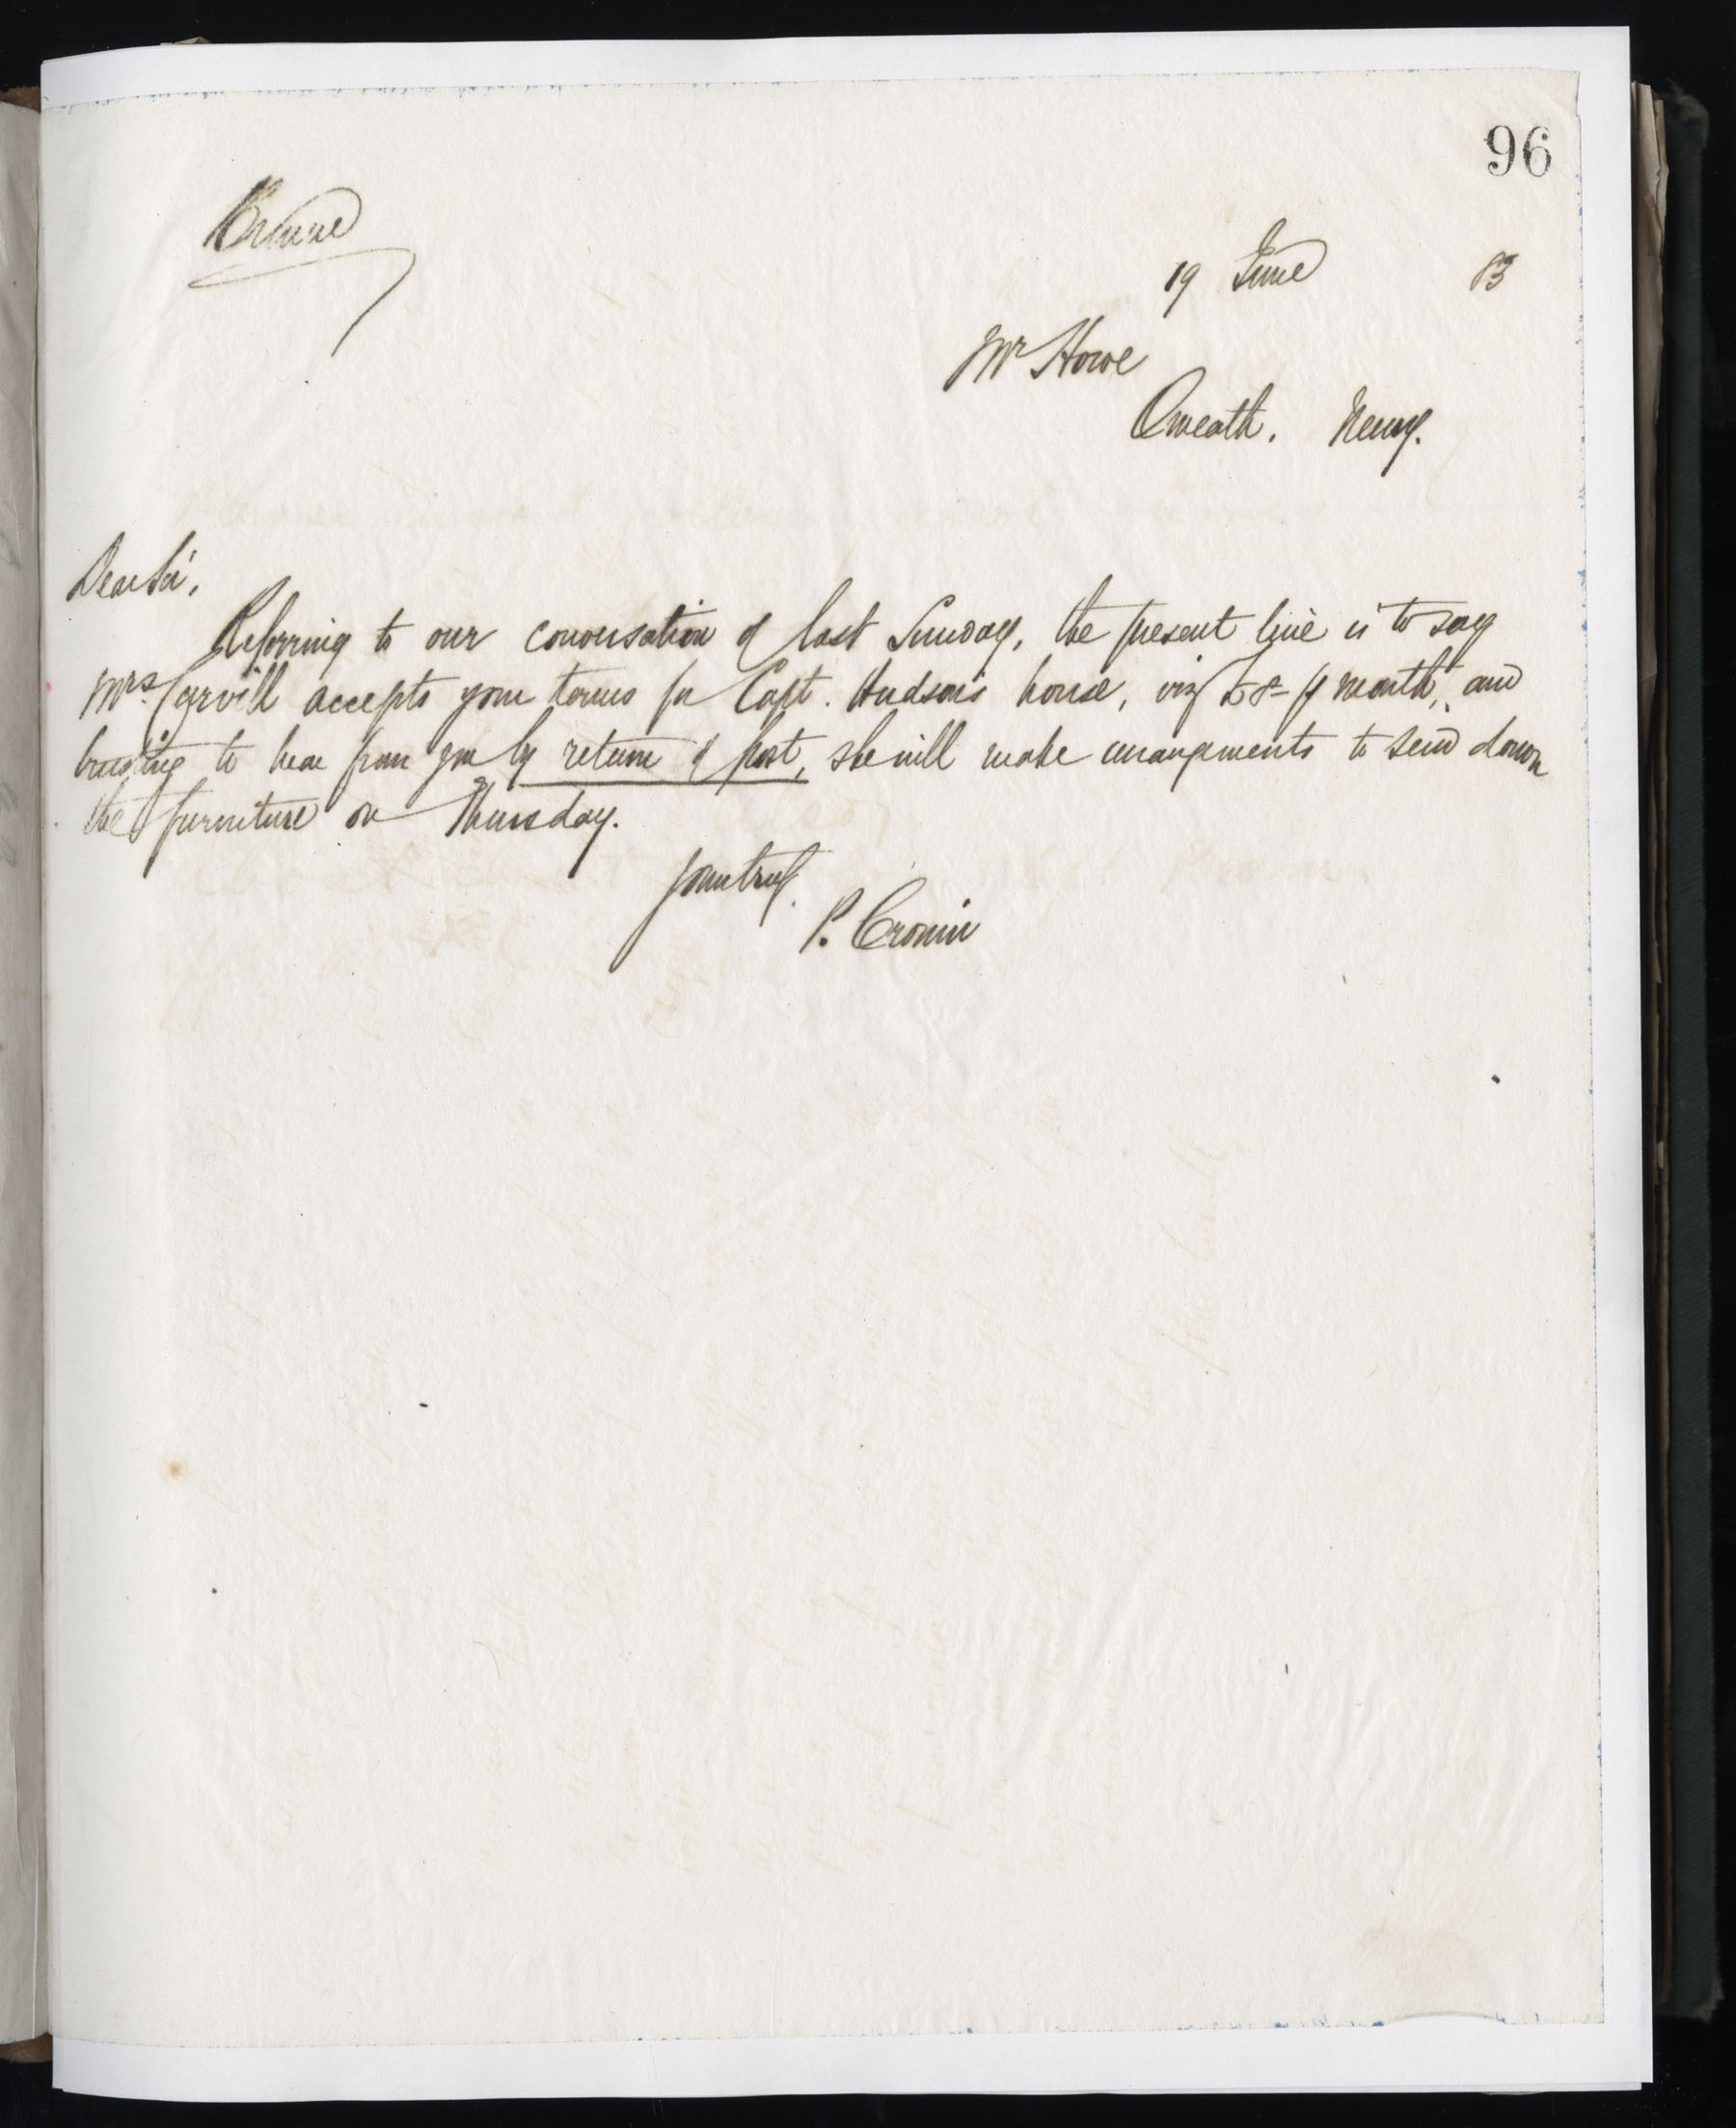 96
19 June 83
Mr Howe
Omeath. Newry.
Dear Sir,
Referring to our conversation of last Sunday, the present line is to say
Mrs. Carvill accepts your terms for Capt. Hudson's house, viz £8- p month, and
trusting to hear from you by return of post, she will make arrangements to send down
the furniture on Thursday.
Yours truly.
P. Cronin